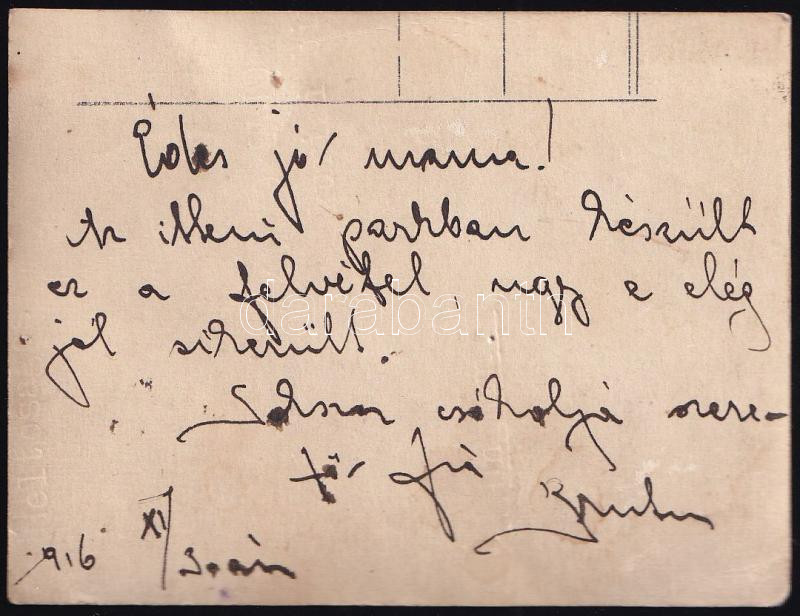 Édes jó mama!
Az itteni parkban készült
ez a felvétel, ugy e elég
jól sikerült.
Sokszor csókolja szere-
tő fia
916 XI/3-án
darabanth